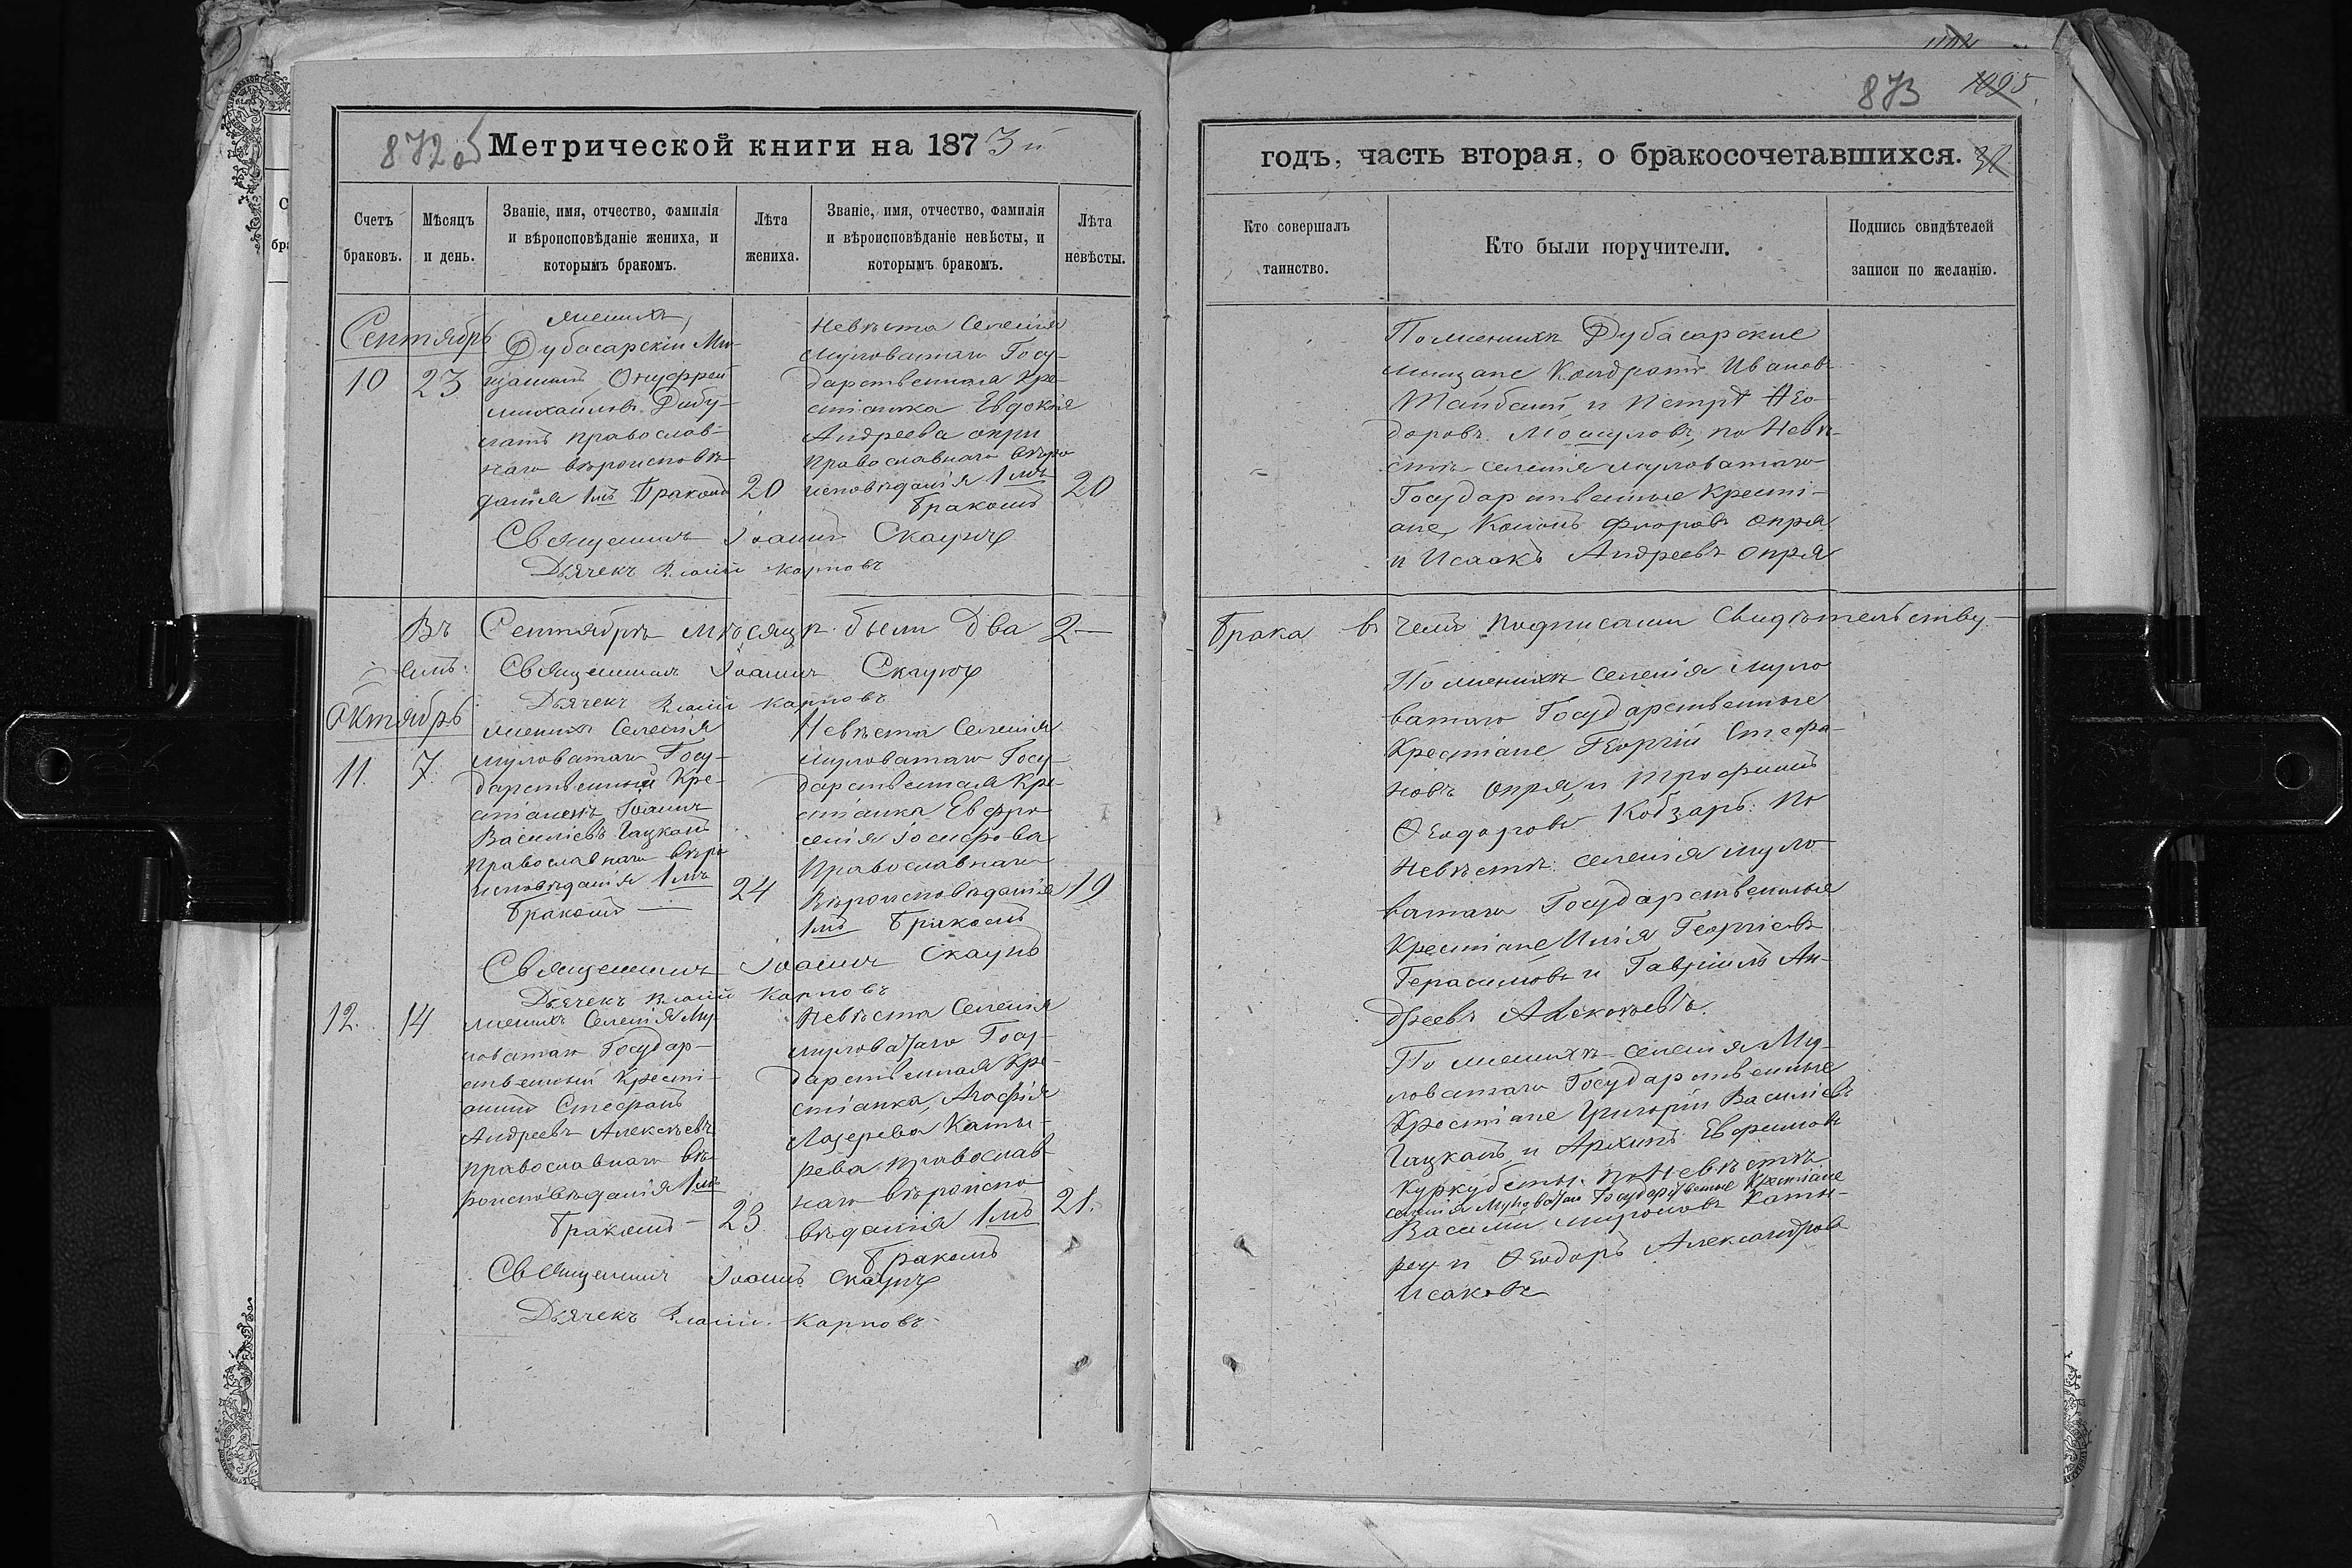 872об Метрической книги на 1873 й
Счетъ
браковъ.
Мѣсяцъ
и день.
Званіе, имя, отчество, фамилія
и вѣроисповѣданіе жениха, и
которымъ бракомъ.
Лѣта
жениха.
Званіе, имя, отчество, фамилія
и вѣроисповѣданіе невѣсты, и
которымъ бракомъ.
Лѣта
невѣсты.
Сентябрь
10
23
жених,
Дубасарскій Мѣ-
щанинъ Онуфрей
михаиловъ
православ-
наго вѣроисповѣ
данія 1мъ Бракомъ
20
Невѣста Селенія
муловатаго Госу-
дарственная Кре-
стіанка Евдокія
Андреева опри
православнаго вѣро
исповѣданія 1мъ
Бракомъ
20
Священникъ Іоаннъ Скаунъ
Дьячекъ Власій Карповъ
Въ Сентябрѣ мѣсяцѣ были два 2-
Священникъ Іоаннъ Скаунъ
Дьячекъ Власій Карповъ
Октябрь
11.
7.
жених Селенія
муловатаго Госу-
дарственный Кре-
стіанинъ Іоаннъ
Василіевъ Гацканъ
православнаго вѣро
исповѣданія 1мъ
Бракомъ
24
Невѣста Селенія
муловатаго Госу-
дарственная Кре-
стіанка Евфро
сенія Іосифова
православнаго
Вѣроисповѣданія
1мъ Бракомъ
19
Священникъ Іоаннъ Скаунъ
Дьячекъ Власій Карповъ
12.
14
женихъ Селенія Му-
ловатаго Государ-
ственный Кресті-
анинъ Стефанъ
Андреевъ Алексѣевъ
православнаго вѣ-
роисповѣданія 1мъ
Бракомъ
23
Невѣста Селенія
муловатаго Госу-
дарственная Кре-
стіанка, Агафія
Лазерева Каты-
рева православ-
наго вѣроиспо
вѣданія 1мъ
Бракомъ
21.
Священникъ Іоаннъ Скаунъ
Дьячекъ Власій Карповъ
873 1095
годъ, часть вторая, о бракосочетавшихся.
Кто совершалъ
таинство.
Кто были поручители.
Подпись свидѣтелей
записи по желанію.
По женихѣ Дубасарские
мищане Кондратъ Ивановъ
и Петръ Ѳео-
доровъ по Невѣ-
стѣ селенія муловатаго
Государственные Кресті-
ане, опря
и Исаакъ Андреевъ опря
Брака въ чемъ подписами Свидѣтельству-
емъ:
По женихѣ селенія муло
ватаго Государственные
Крестіане Георгій Стефа-
новъ опря, и Трофимъ
Ѳеодоровъ Кобзарь: По
Невѣстѣ: селенія муло
ватаго Государственные
Крестіане Илія Георгіевъ
Герасимовъ и Гавріилъ Ан-
дреевъ Алексѣевъ.
По женихѣ селенія Му-
ловатаго Государственные
Крестіане Григорій Василіевъ
Гацканъ и Архипъ Евфимовъ
Куркубетъ. по Невѣстѣ
селенія Муловатаго Государственные Крестіане
Василій мироновъ Каты-
рев и Ѳеодоръ Александров
Исаковъ